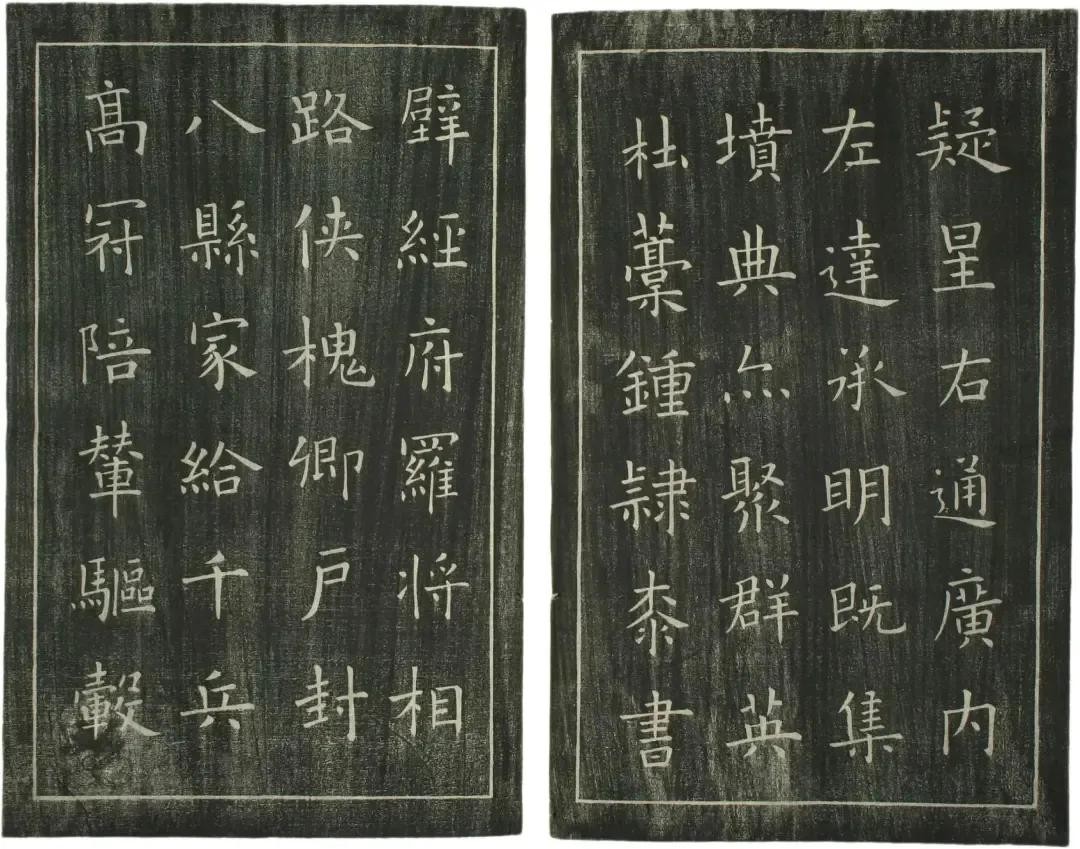 疑星右通廣内
左達承明既集
墳典亦聚群英
杜藁鍾隷桼書
壁經府羅将相
路俠槐卿户封
八縣家給千兵
髙冠陪輦驅轂